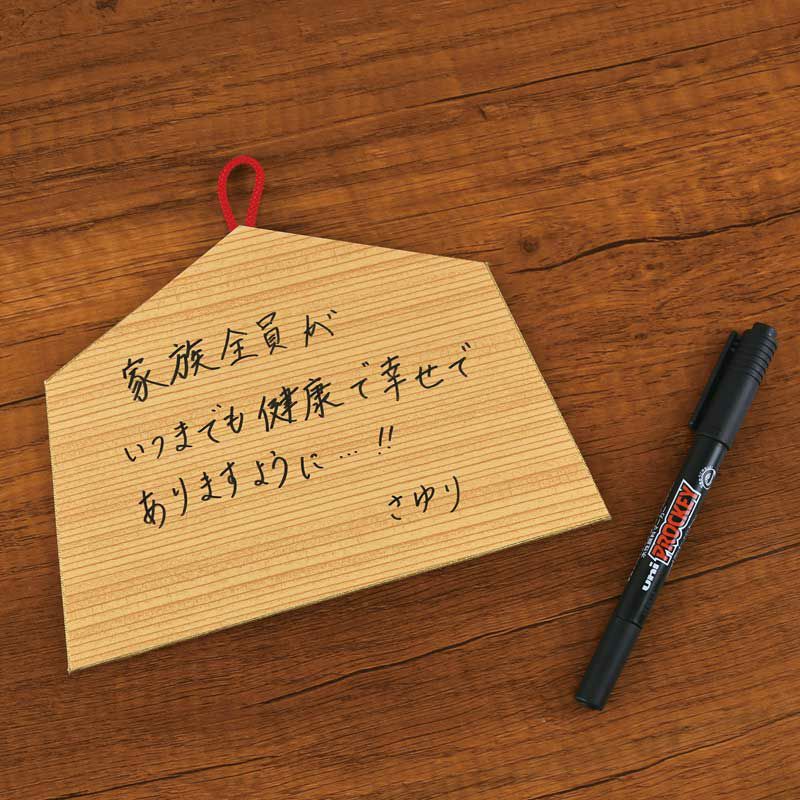 家族全員が
いつまでも健康で幸せで
ありますように…!!
さゆり
uni PROCKEY